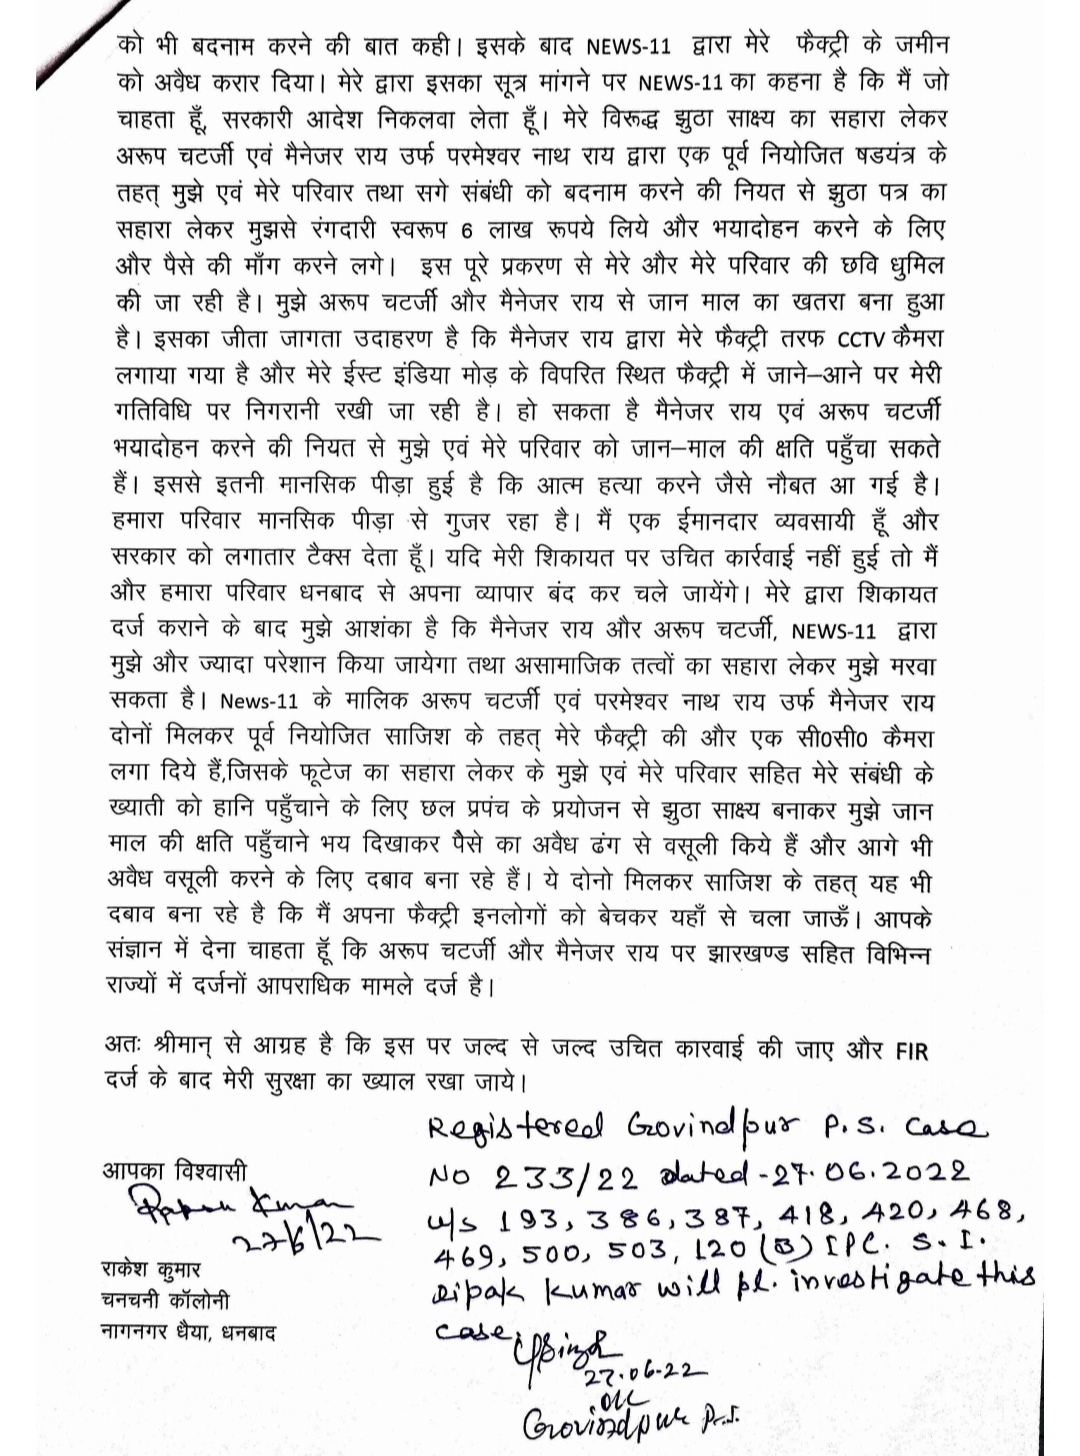 को भी बदनाम करने की बात कही। इसके बाद NEWS-11 द्वारा मेरे फैक्ट्री के जमीन
को अवैध करार दिया। मेरे द्वारा इसका सूत्र मांगने पर NEWS-11 का कहना है कि मैं जो
चाहता हूँ, सरकारी आदेश निकलवा लेता हूँ। मेरे विरूद्ध झुठा साक्ष्य का सहारा लेकर
अरूप चटर्जी एवं मैनेजर राय उर्फ परमेश्वर नाथ राय द्वारा एक पूर्व नियोजित षडयंत्र के
तहत् मुझे एवं मेरे परिवार तथा सगे संबंधी को बदनाम करने की नियत से झुठा पत्र का
सहारा लेकर मुझसे रंगदारी स्वरूप 6 लाख रूपये लिये और भयादोहन करने के लिए
और पैसे की माँग करने लगे। इस पूरे प्रकरण से मेरे और मेरे परिवार की छवि धुमिल
की जा रही है। मुझे अरूप चटर्जी और मैनेजर राय से जान माल का खतरा बना हुआ
है। इसका जीता जागता उदाहरण है कि मैनेजर राय द्वारा मेरे फैक्ट्री तरफ CCTV कैमरा
लगाया गया है और मेरे ईस्ट इंडिया मोड़ के विपरित स्थित फैक्ट्री में जाने–आने पर मेरी
गतिविधि पर निगरानी रखी जा रही है। हो सकता है मैनेजर राय एवं अरूप चटर्जी
भयादोहन करने की नियत से मुझे एवं मेरे परिवार को जान–माल की क्षति पहुँचा सकते
हैं। इससे इतनी मानसिक पीड़ा हुई है कि आत्म हत्या करने जैसे नौबत आ गई है।
हमारा परिवार मानसिक पीड़ा से गुजर रहा है। मैं एक ईमानदार व्यवसायी हूँ और
सरकार को लगातार टैक्स देता हूँ। यदि मेरी शिकायत पर उचित कार्रवाई नहीं हुई तो मैं
और हमारा परिवार धनबाद से अपना व्यापार बंद कर चले जायेंगे। मेरे द्वारा शिकायत
दर्ज कराने के बाद मुझे आशंका है कि मैनेजर राय और अरूप चटर्जी, NEWS-11 द्वारा
मुझे और ज्यादा परेशान किया जायेगा तथा असामाजिक तत्वों का सहारा लेकर मुझे मरवा
सकता है। News-11 के मालिक अरूप चटर्जी एवं परमेश्वर नाथ राय उर्फ मैनेजर राय
दोनों मिलकर पूर्व नियोजित साजिश के तहत् मेरे फैक्ट्री की और एक सी0सी0 कैमरा
लगा दिये हैं,जिसके फूटेज का सहारा लेकर के मुझे एवं मेरे परिवार सहित मेरे संबंधी के
ख्याती को हानि पहुँचाने के लिए छल प्रपंच के प्रयोजन से झुठा साक्ष्य बनाकर मुझे जान
माल की क्षति पहुँचाने भय दिखाकर पैसे का अवैध ढंग से वसूली किये हैं और आगे भी
अवैध वसूली करने के लिए दबाव बना रहे हैं। ये दोनो मिलकर साजिश के तहत् यह भी
दबाव बना रहे है कि मैं अपना फैक्ट्री इनलोगों को बेचकर यहाँ से चला जाऊँ। आपके
संज्ञान में देना चाहता हूँ कि अरूप चटर्जी और मैनेजर राय पर झारखण्ड सहित विभिन्न
राज्यों में दर्जनों आपराधिक मामले दर्ज है।
अतः श्रीमान् से आग्रह है कि इस पर जल्द से जल्द उचित कारवाई की जाए और FIR
दर्ज के बाद मेरी सुरक्षा का ख्याल रखा जाये।
आपका विश्वासी
Kumar
27/6/22
राकेश कुमार
चनचनी कॉलोनी
नागनगर धैया, धनबाद
Registered Govindpur P.S. Case
No 233/22 dated-27.06.2022
u/s 193, 386, 387, 418, 420, 468,
469, 500, 503, 120(B) IPC. S.I.
Dipak Kumar will pl. investigate this
case.
Singh
27.06.22
Govindpur P.S.